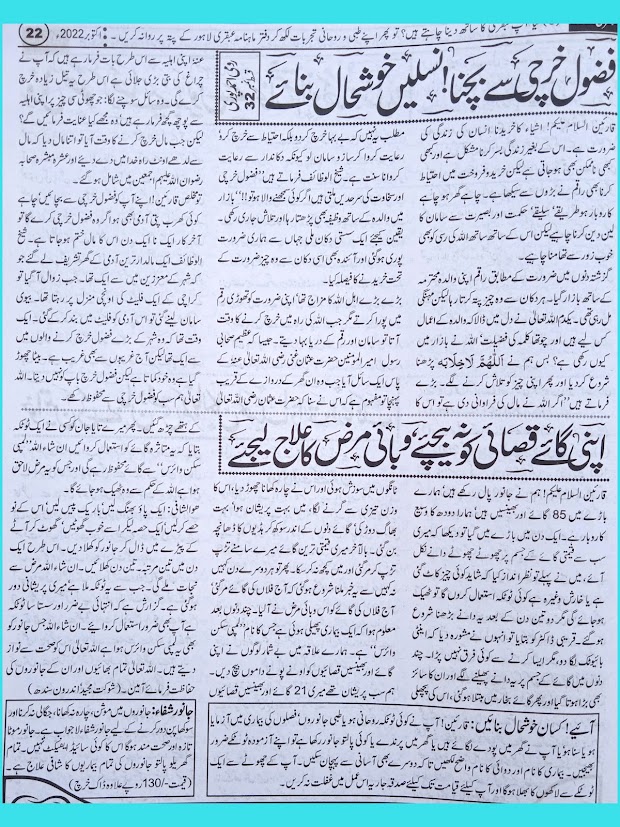 22
اکتوبر 2022ء
فضول خرچی سے بچنا! نسلیں خوشحال بنائے
قسط نمبر 32
قارئین السلام علیکم! اشیاء کا خریدنا انسان کی زندگی کی
ضرورت ہے۔ اس کے بغیر زندگی بسر کرنا مشکل ہے اور کبھی
کبھی ناممکن بھی ہو جاتی ہے لیکن خرید و فروخت میں احتیاط
کرنا بھی رقم نے بڑوں سے سیکھا ہے۔ چاہے گھر ہو چاہے
کاروبار ہو طریقے، سلیقے، حکمت اور بصیرت سے سامان کا
لین دین کرنا چاہیے لیکن اس کے ساتھ ساتھ اللہ کی رسی کو بھی
خوب زور سے تھامنا چاہیے۔
گزشتہ دنوں میں ضرورت کے مطابق راقم اپنی والدہ محترمہ
کے ساتھ بازار گیا۔ ہر دکان سے وہ چیز پتہ کرتا رہا لیکن مہنگی
مل رہی تھی۔ یکدم اللہ تعالیٰ نے دل میں ڈالا کہ والدہ کے اعمال
کس لیے ہیں اور چوتھا کلمہ کی فضیلت! اللہ نے بازار میں
کیوں رکھی ہے؟ بس ہم نے اَللّٰهُمَّ لَا خِلَابَه پڑھنا
شروع کر دیا اور پھر اپنی چیز کو تلاش کرنے لگے۔ بڑے
فرماتے ہیں ''اگر اللہ نے مال کی فراوانی دی ہے تو اس کا
مطلب یہ نہیں کہ بے بہا خرچ کر دو بلکہ احتیاط سے خرچ کرو
رعایت کروا کر ساز و سامان لو کیونکہ دکاندار سے رعایت
کروانا سنت ہے۔ شیخ الوظائف فرماتے ہیں ''فضول خرچی
اور سخاوت کی سرحد میں ملتی ہیں اگر کوئی سمجھنے والا ہو تو!!'' بازار
میں والدہ کے ساتھ وظیفہ بھی پڑھتا رہا اور تلاش جاری رکھی۔
یقین کیجئے ایک سستی دکان ملی جہاں سے ہماری ضرورت
پوری ہوگئی اور آئندہ بھی اسی دکان سے وہ چیز ضرورت کے
تحت خریدنے کا فیصلہ کیا۔
بڑے بڑے اہل اللہ کا مزاج تھا، اپنی ضرورت کو تھوڑی رقم
میں پورا کرتے مگر جب اللہ کی راہ میں خرچ کرنے کا وقت
آتا تو سامان اور رقم کے دریا بہا دیتے۔ جیسا کہ عظیم صحابی
رسول امیر المؤمنین حضرت عثمان غنی رضی اللہ تعالیٰ عنہٗ کے
پاس ایک سائل آیا جب وہ ان کے گھر کے دروازے کے قریب
پہنچا تو مفہوم ہے کہ اس نے سنا کہ حضرت عثمان رضی اللہ تعالیٰ
عنہٗ اپنی اہلیہ سے اس طرح بات فرما رہے ہیں کہ آپ نے
چراغ کی بتی بڑی جلائی ہے اس طرح یہ تیل زیادہ خرچ
کرے گی۔ وہ سائل سوچنے لگا: جو چھوٹی سی چیز پر اپنی اہلیہ
سے پوچھ گچھ فرما رہے ہیں وہ مجھے کیا عنایت فرمائیں گے؟
لیکن جب مال خرچ کرنے کا وقت آیا تو اتنا مال دیا کہ مال
سے لدھے اونٹ راہ خدا میں دے دیئے اور عشرہ مبشرہ صحابہ
رضوان اللہ علیہم اجمعین میں شامل ہوگئے۔
تو مخلص قارئین! اپنے آپ کو فضول خرچی سے بچائیں چاہے
کوئی کھرب پتی آدمی بھی ہو اگر وہ فضول خرچی کرے گا تو
آخر کار ایک نا ایک دن اس کا مال ختم ہو جاتا ہے۔ شیخ
الوظائف ایک مالدار ترین آدمی کے گھر تشریف لے گئے جو
کہ شہر کے معززین میں سے ایک تھا۔ جب زوال آگیا تو
کراچی کے ایک فلیٹ کی اونچی منزل پر رہتا تھا۔ بیوی
سامان لینے گئی تو اس آدمی کو فلیٹ میں بند کر کے گئی۔ ایک
وقت تھا کہ وہ شہر کے بڑے فضول خرچی کرنے والوں میں
سے ایک تھا لیکن آج غریبوں سے بھی غریب ہے۔ بیٹا چھوڑ
گیا ہے وہ خود کماتا ہے لیکن فضول خرچ باپ کو نہیں دیتا۔ اللہ
تعالیٰ ہم سب کو فضول خرچی سے محفوظ رکھے۔
اپنی گائے قصائی کو نہ بیچئے، وبائی مرض کا علاج لیجئے
قارئین السلام علیکم! ہم نے جانور پال رکھے ہیں ہمارے
باڑے میں 85 گائے اور بھینسیں ہیں ہمارا دودھ کا وسیع
کاروبار ہے۔ ایک دن میں باڑے میں گیا تو دیکھا کہ میری
سب سے قیمتی گائے کے جسم پر چھوٹے چھوٹے دانے نکل
آئے، میں نے پہلے تو نظر انداز کیا کہ شاید کوئی چیز کاٹ گئی
ہے یا خارش وغیرہ ہے کوئی ٹوٹکہ استعمال کروں گا تو ٹھیک
ہو جائے گی مگر دو تین دن کے بعد یہ دانے بڑھنا شروع
ہوگئے۔ قریبی ڈاکٹر کو بتایا تو انہوں نے مشورہ دیا کہ اینٹی
بائیوٹک لگا دو، مگر ایسا کرنے سے کوئی فرق نہیں پڑا۔ چند
دنوں میں گائے کے جسم پر یہ دانے پھیلنے لگے اور ان کا سائز
بھی بڑا ہوتا گیا اور پھر گائے بخار میں مبتلا ہوگئی، اس کی پچھلی
ٹانگوں میں سوزش ہوئی اور اس نے چارہ کھانا چھوڑ دیا، اس کا
وزن تیزی سے گرنے لگا، میں بہت پریشان ہوا، بہت
بھاگ دوڑ کی، گائے دنوں کے اندر سوکھ کر ہڈیوں کا ڈھانچہ
بن گئی۔ بالآخر میری قیمتی ترین گائے میرے سامنے تڑپ
تڑپ کر مر گئی اور میں کچھ نہ کر سکا۔ پھر تو ہر دوسرے دن کہیں
نہ کہیں سے خبر ملنا شروع ہوگئی کہ آج فلاں کی گائے مرگئی،
آج فلاں کی گائے کو اس وبائی مرض نے آلیا۔ چند دنوں بعد
معلوم ہوا کہ ایک بیماری پھیلی ہوئی ہے، جس کا نام ''لمپی سکن
وائرس'' ہے۔ ہمارے علاقہ میں بے شمار لوگوں نے اپنی
گائے اور بھینسیں قصائیوں کو اونے پونے داموں بیچ دیں۔
ہم سب پریشان تھے میری 21 گائے اور بھینسیں قصائیوں
کے ہتھے چڑھ گئیں۔ پھر میرے تایا جان کو کسی نے ایک ٹوٹکہ
بتایا کہ یہ متاثرہ گائے کو استعمال کروائیں ان شاء اللہ ''لمپی
سکن وائرس'' سے گائے محفوظ رہے گی اور جس کو یہ مرض لاحق
ہوا ہے اللہ کے حکم سے وہ ٹھیک ہو جائے گا۔
ھوالشافی: ایک پاؤ پھٹکی میں باریک پیس لیں اس کے نو
حصے کر لیں ایک حصہ لیکر اسے خوب گھوٹیں، گھوٹے کر آٹے
کے پیڑے میں ڈال کر جانور کو کھلا دیں۔ اس طرح ایک
دن میں تین مرتبہ۔ تین دن کھلائیں۔ ان شاء اللہ مرض سے
نجات ملے گی۔ جب سے یہ ٹوٹکہ ملا ہے میری پریشانی دور
ہوگئی ہے۔ گزارش ہے کہ انتہائی بے ضرر اور سستا سا ٹوٹکہ
ہے آپ بھی ضرور استعمال کروائیے۔ ان شاء اللہ جس جانور کو
بھی یہ لمپی سکن وائرس ہوا ہے اللہ تعالیٰ اس کو صحت سے نواز
دیتے ہیں۔ اللہ تعالیٰ تمام بھائیوں اور ان کے جانوروں کی
حفاظت فرمائے آمین۔ (شوکت مجید، اندرون سندھ)
جانور شفاء: جانوروں میں موشن، چارہ نہ کھانا، جگالی نہ کرنا اور
سوکھا پن دور کرنے کے لیے جانور شفاء لاجواب ہے۔ جانور موٹا
تازہ اور صحت مند ہوگا اس کا کوئی سائیڈ ایفیکٹ نہیں۔ تمام
گھریلو پالتو جانوروں کی تمام بیماریوں کا شافی علاج ہے۔
(قیمت-/130 روپے علاوہ ڈاک خرچ)
آیئے! کسان خوشحال بنائیں: قارئین! آپ نے کوئی ٹوٹکہ روحانی ہو یا طبی جانوروں، فصلوں کی بیماری میں آزمایا
ہو یا سنا ہو یا آپ نے گھر میں پودے لگائے ہیں یا گھر میں پرندے یا کوئی پالتو جانور رکھا ہے تو اپنے آزمودہ ٹوٹکے ضرور
بھیجیں۔ بیماری کا نام اور دوائی کا نام واضح لکھیں تاکہ دوسرے بھی آسانی سے پہچان سکیں۔ آپ کے چھوٹے سے ایک
ٹوٹکے سے لاکھوں کا بھلا ہوگا اور آپ کیلئے قیامت تک کیلئے صدقہ جاریہ اس عمل میں غفلت نہ کریں۔